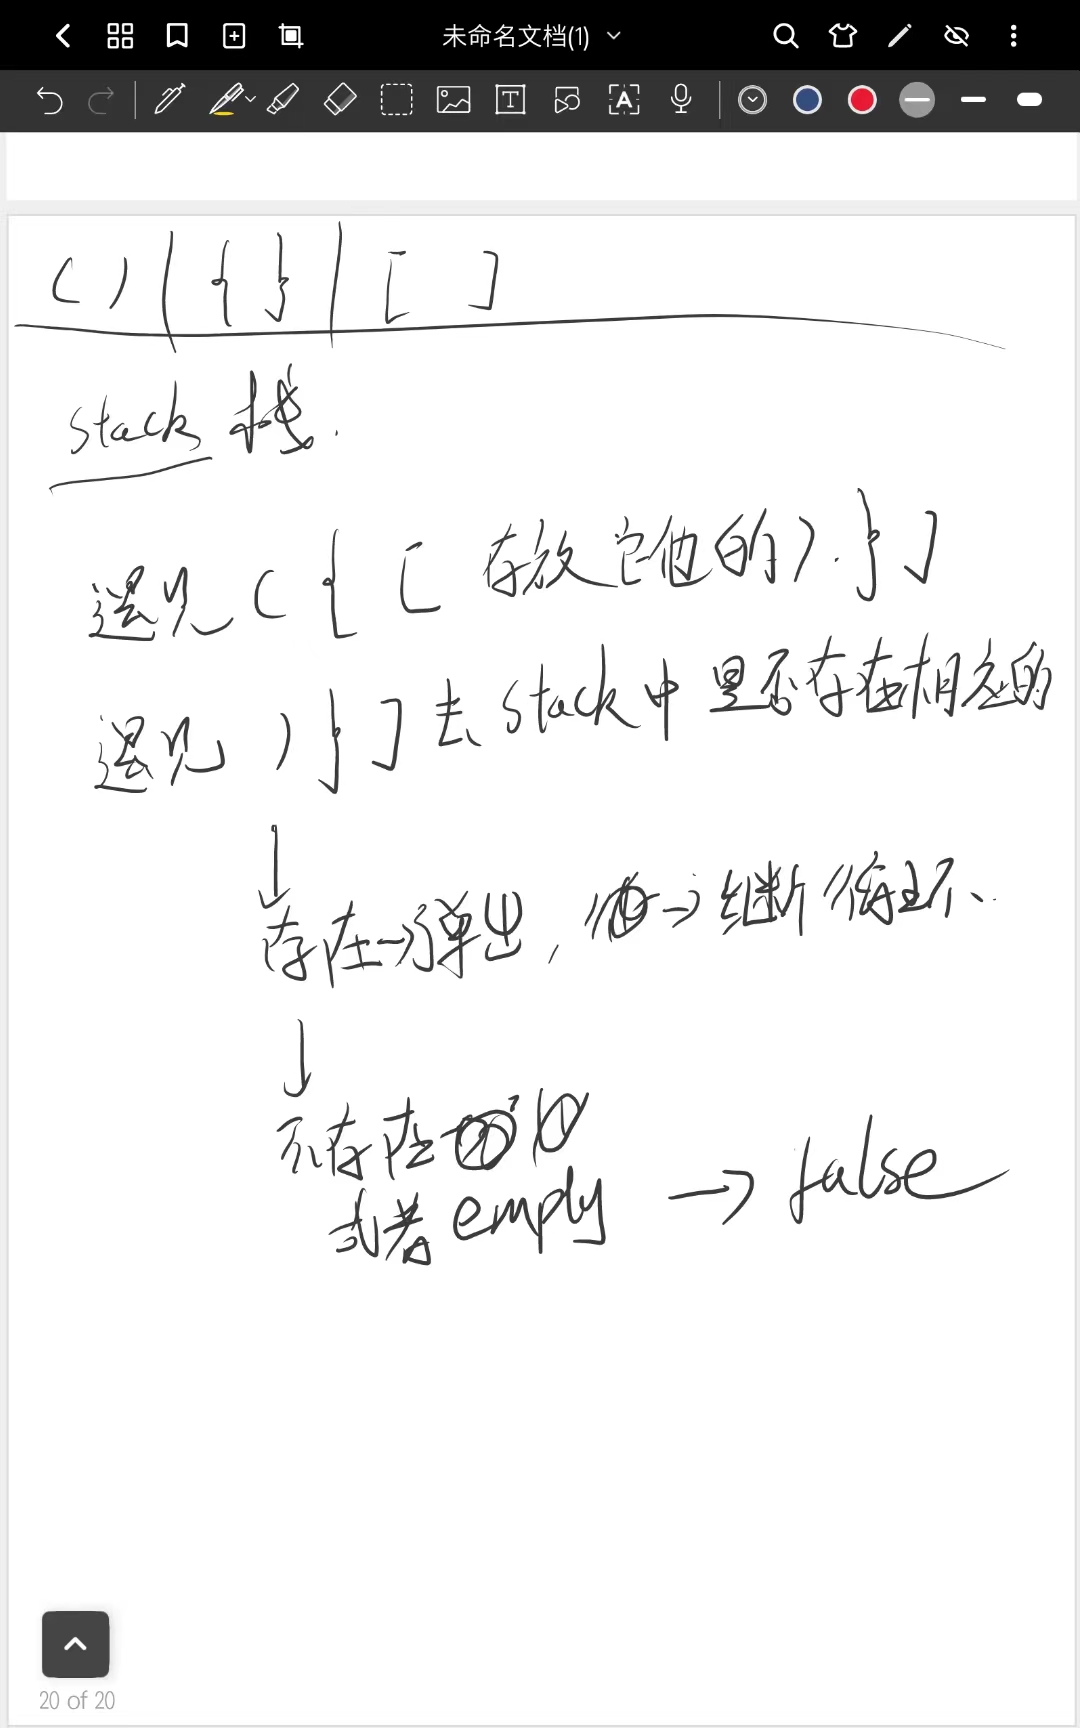 未命名文档(1)
( ) | { } | [ ]
stack 栈.
遇见 ( { [ 存放它他的 ) } ]
遇见 ) } ] 去 stack 中 是否存在相应的
↓
存在→弹出, → 继断循环、
↓
不存在
或者 empty → false
20 of 20